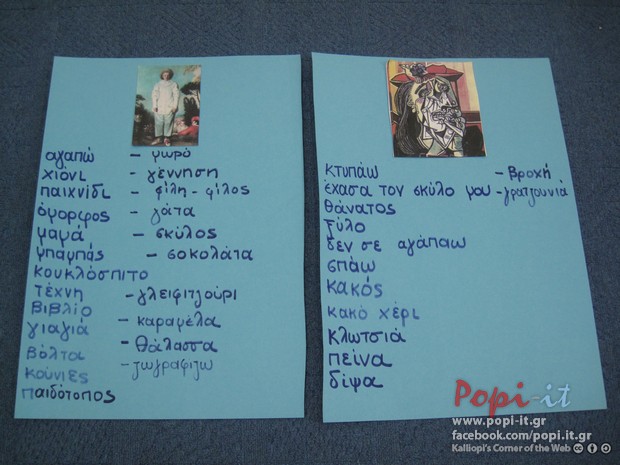 αγαπώ - μωρό
χιόνι - γέννηση
παιχνίδι - φίλη - φίλος
όμορφος - γάτα
μαμά - σκύλος
μπαμπάς - σοκολάτα
κουκλόσπιτο
τέχνη - γλειφιτζούρι
βιβλίο - καραμέλα
γιαγιά - θάλασσα
βόλτα - ζωγραφίζω
κούνιες
παιδότοπος
κτυπάω - βροχή
έχασα τον σκύλο μου - γρατζουνιά
θάνατος
ξύλο
δεν σε αγάπαω
σπάω
κακός
κακό χέρι
κλωτσιά
πείνα
δίψα
Popi-it
www.popi-it.gr
facebook.com/popi.it.gr
Kalliopi's Corner of the Web